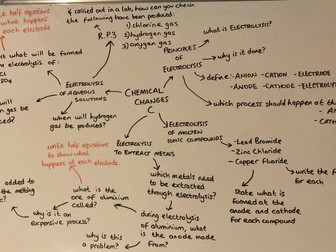 write half equations
what happens
each electrode
what will be formed
electrolysis of:
ELECTROLYSIS
OF AQUEOUS
SOLUTIONS
when will hydrogen
gas be produced?
will
gen
If carried out in a lab, how can you check
the following have been produced:
1) chlorine gas
2) hydrogen gas
3) oxygen gas
R.P.3
CHEMICAL
CHANGES
C
what is ELECTROLYSIS?
PRINCIPLES
OF
ELECTROLYSIS
why is it done?
define: -ANION -CATION -ELECTRODE
-ANODE -CATHODE -ELECTROLYTE
which process should happen at the
ELECTROLYSIS
OF MOLTEN
IONIC COMPOUNDS
-Lead Bromide
-Zinc Chloride
- Copper Fluoride
write the
for each
State what is
formed at the
anode and cathode
for each compound
ELECTROLYSIS
TO EXTRACT METALS
write half equations
to show what
happens at each electrode.
which metals need to
be extracted
through electrolysis?
what is the
ore of aluminium
called?
added to
the melting
why is it an
expensive process?
during electrolysis
of aluminium, what
is the anode made
from?
why is this
a problem?